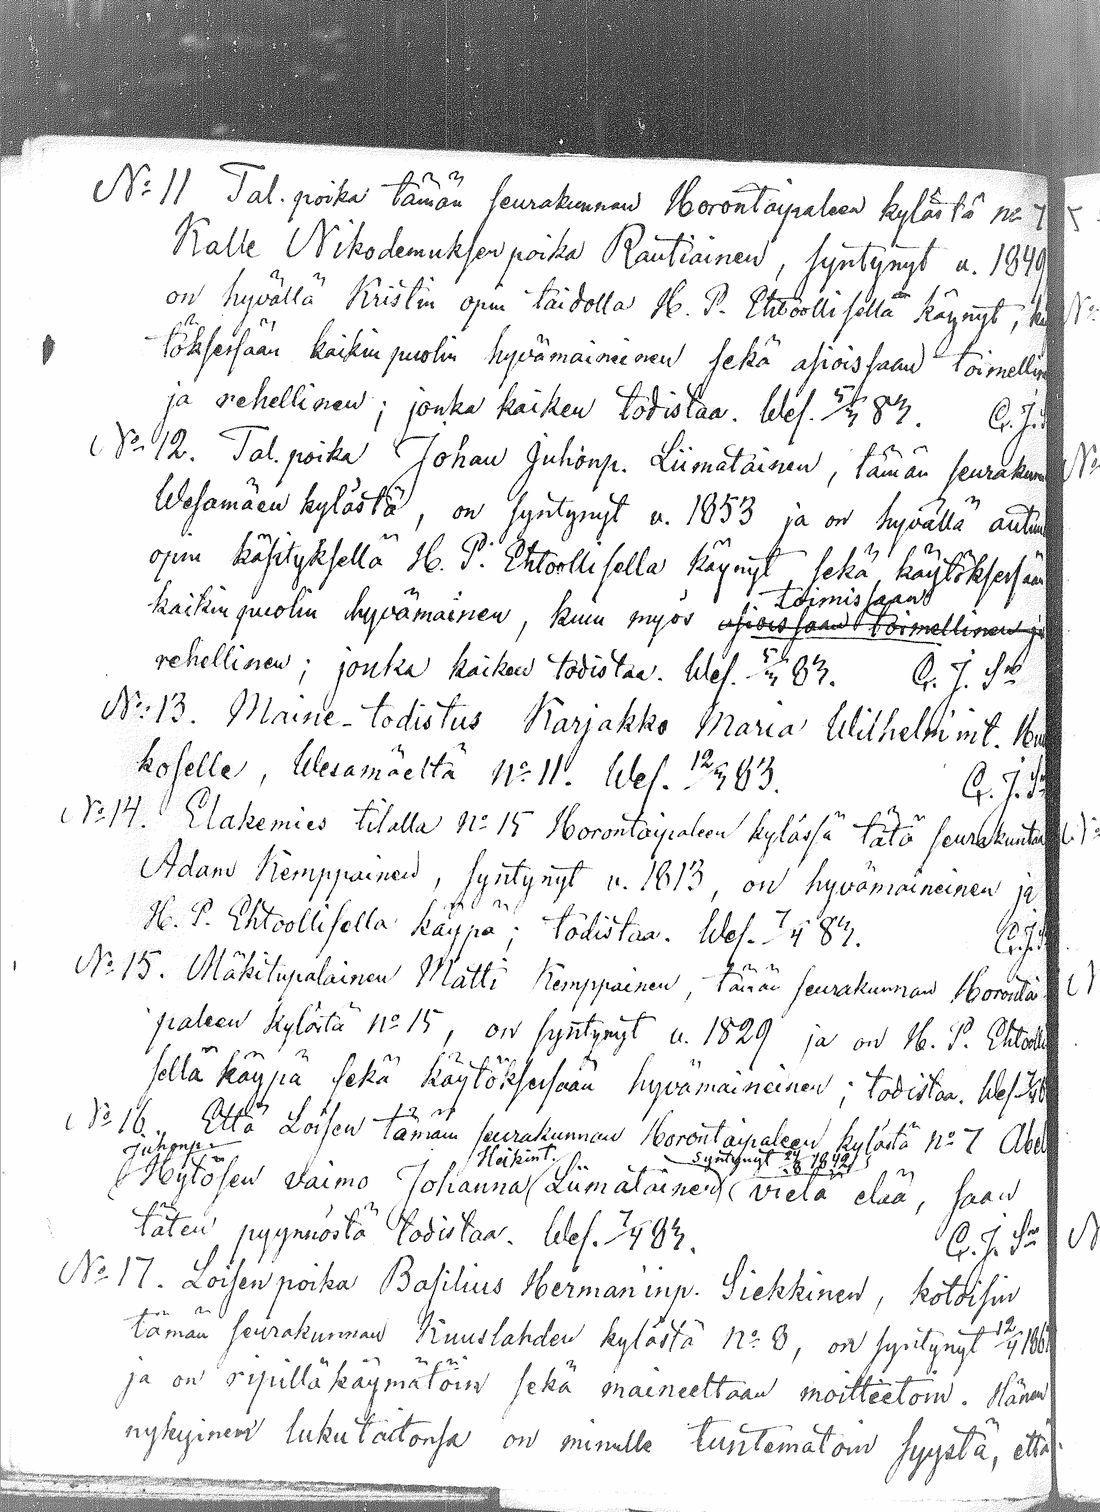 No 11 Tal. poika tämän seurakunnan Horontaipaleen kylästä no 7
Kalle Nikodemuksen poika Rautiainen, syntynyt v. 1849
on hyvällä Kristin opin taidolla H. P. Ehtoollisella käynyt, kä
töksessään kaikin puolin hyvämaineinen sekä asioissaan toimellin
ja rehellinen; jonka kaiken todistaa. Wes. 5/3 83. C. J. S
No 12. Tal. poika Johan Juhonp. Liimatainen, tämän seurakun
Wesamäen kylästä, on syntynyt v. 1853 ja on hyvällä autu
opin käsityksellä H. P. Ehtoollisella käynyt, sekä käytöksessään
toimissaan
kaikin puolin hyvämainen, kuin myös asioissaan toimellinen ja
rehellinen; jonka kaiken todistaa. Wes. 5/3 83. C. J. Sm
No 13. Maine-todistus Karjakko Maria Wilhelmint. Hu
koselle, Wesamäeltä no 11. Wes. 12/3 83. C. J. Sm
No 14. Elakemies tilalla no 15 Horontaipaleen kylässä tätä seurakuntaa
Adam Kemppainen, syntynyt v. 1813, on hyvämaineinen ja
H. P. Ehtoollisella käypä; todistaa. Wes. 7/4 83. C. J. S
No 15. Mäkitupalainen Matti Kemppainen, tämän seurakunnan Horontai
paleen kylästä no 15, on syntynyt v. 1829 ja on H. P. Ehtoolli
sella käypä sekä käytöksessään hyvämaineinen; todistaa. Wes. 7/4 8
No 16. Että Loisen tämän seurakunnan Horontaipaleen kylästä no 7 Abel
Juhonp. Heikint. syntynyt 24/8 1842
Hytösen vaimo Johanna Liimatainen vielä elää, saan
täten pyynnöstä todistaa. Wes. 7/4 83. C. J. Sm
No 17. Loisen poika Basilius Herman'inp. Siekkinen, kotoisin
tämän seurakunnan Kuuslahden kylästä no 8, on syntynyt 12/4 186
ja on ripilläkäymätöin sekä maineeltaan moitteetoin. Hänen
nykyinen lukutaitonsa on minulle tuntematoin syystä, että